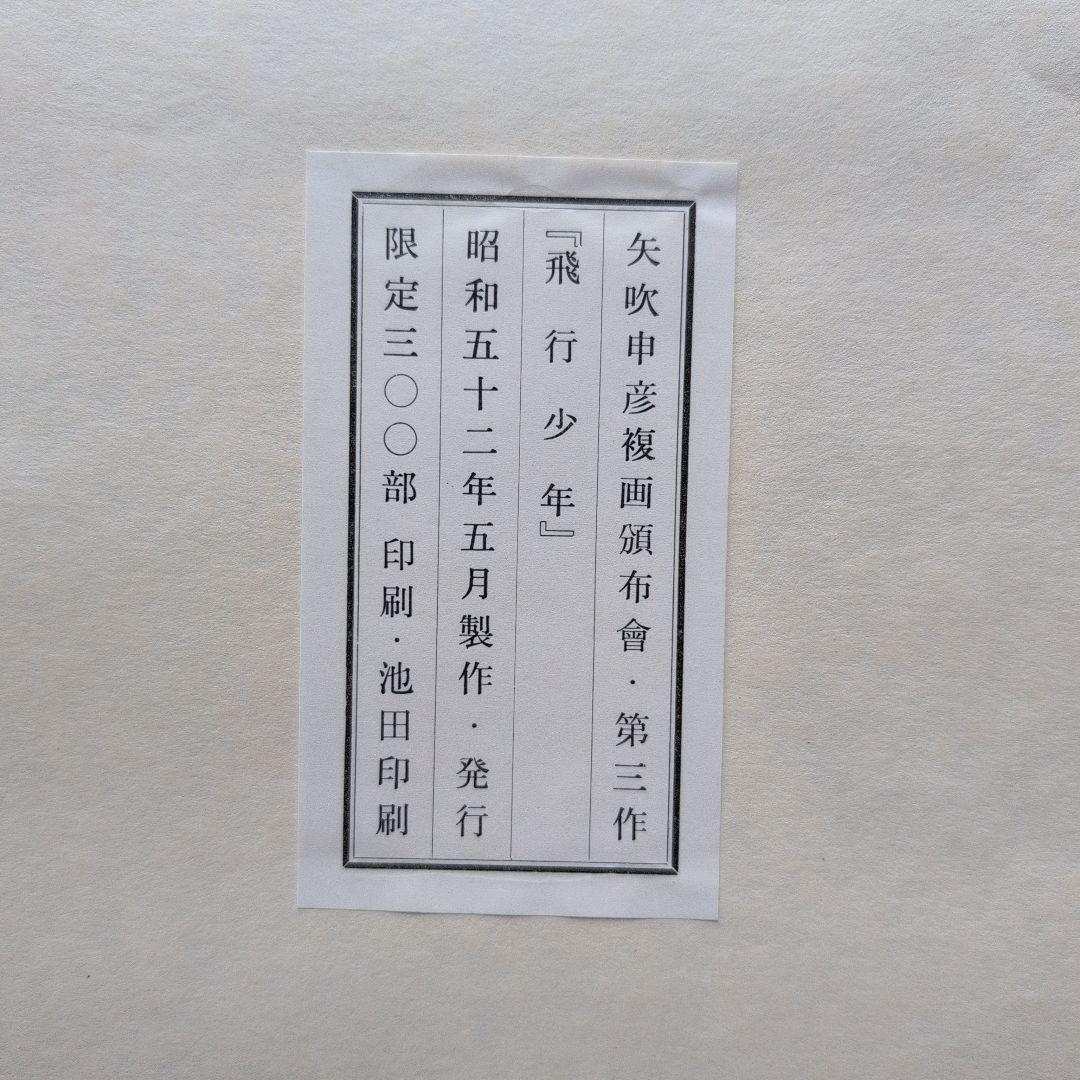 矢吹申彦複画頒布會・第三作
『飛行少年』
昭和五十二年五月製作・発行
限定三〇〇部 印刷・池田印刷